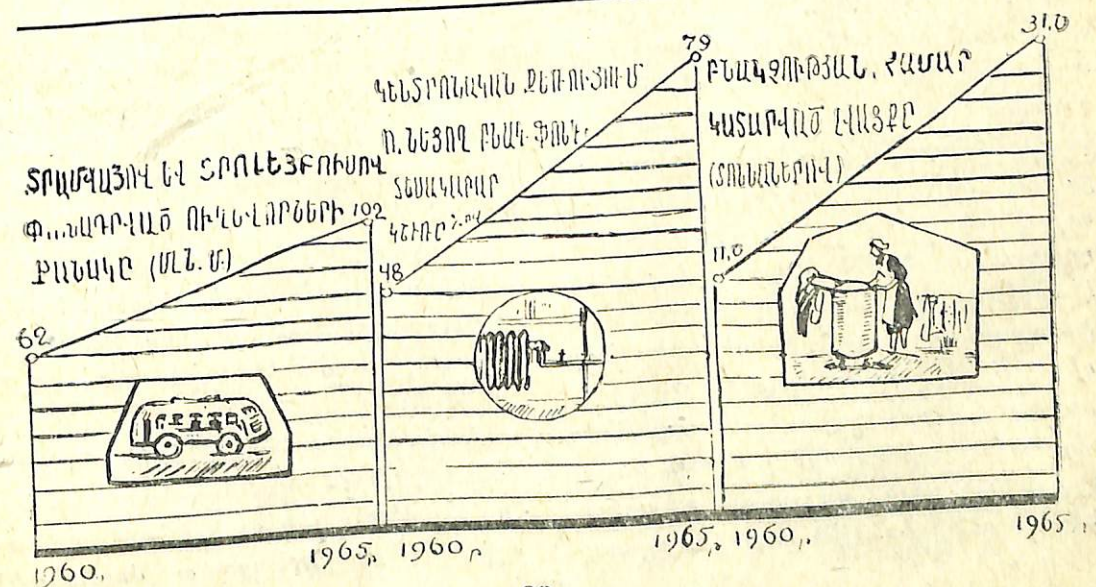 ՏՐԱՄՎԱՅՈՎ ԵՎ ՏՐՈԼԵՅԲՈՒՍՈՎ
ՈՒՂԵՎՈՐՆԵՐԻ
ՔԱՆԱԿԸ (ՄԼՆ. Մ.)
62
102
1960
1965
ԿԵՆՏՐՈՆԱԿԱՆ ՋԵՌՈՒՑՈՒՄ
ՈՒՆԵՑՈՂ ԲՆԱԿ. ՖՈՆԴԻ
ՏԵՍԱԿԱՐԱՐ
ԿՇԻՌԸ
48
79
1960 թ
1965
ԲՆԱԿՉՈՒԹՅԱՆ ՀԱՄԱՐ
ԿԱՏԱՐՎԱԾ ԼՎԱՑՔԸ
(ՏՈՆՆԱՆԵՐՈՎ)
11,0
31,0
1960
1965